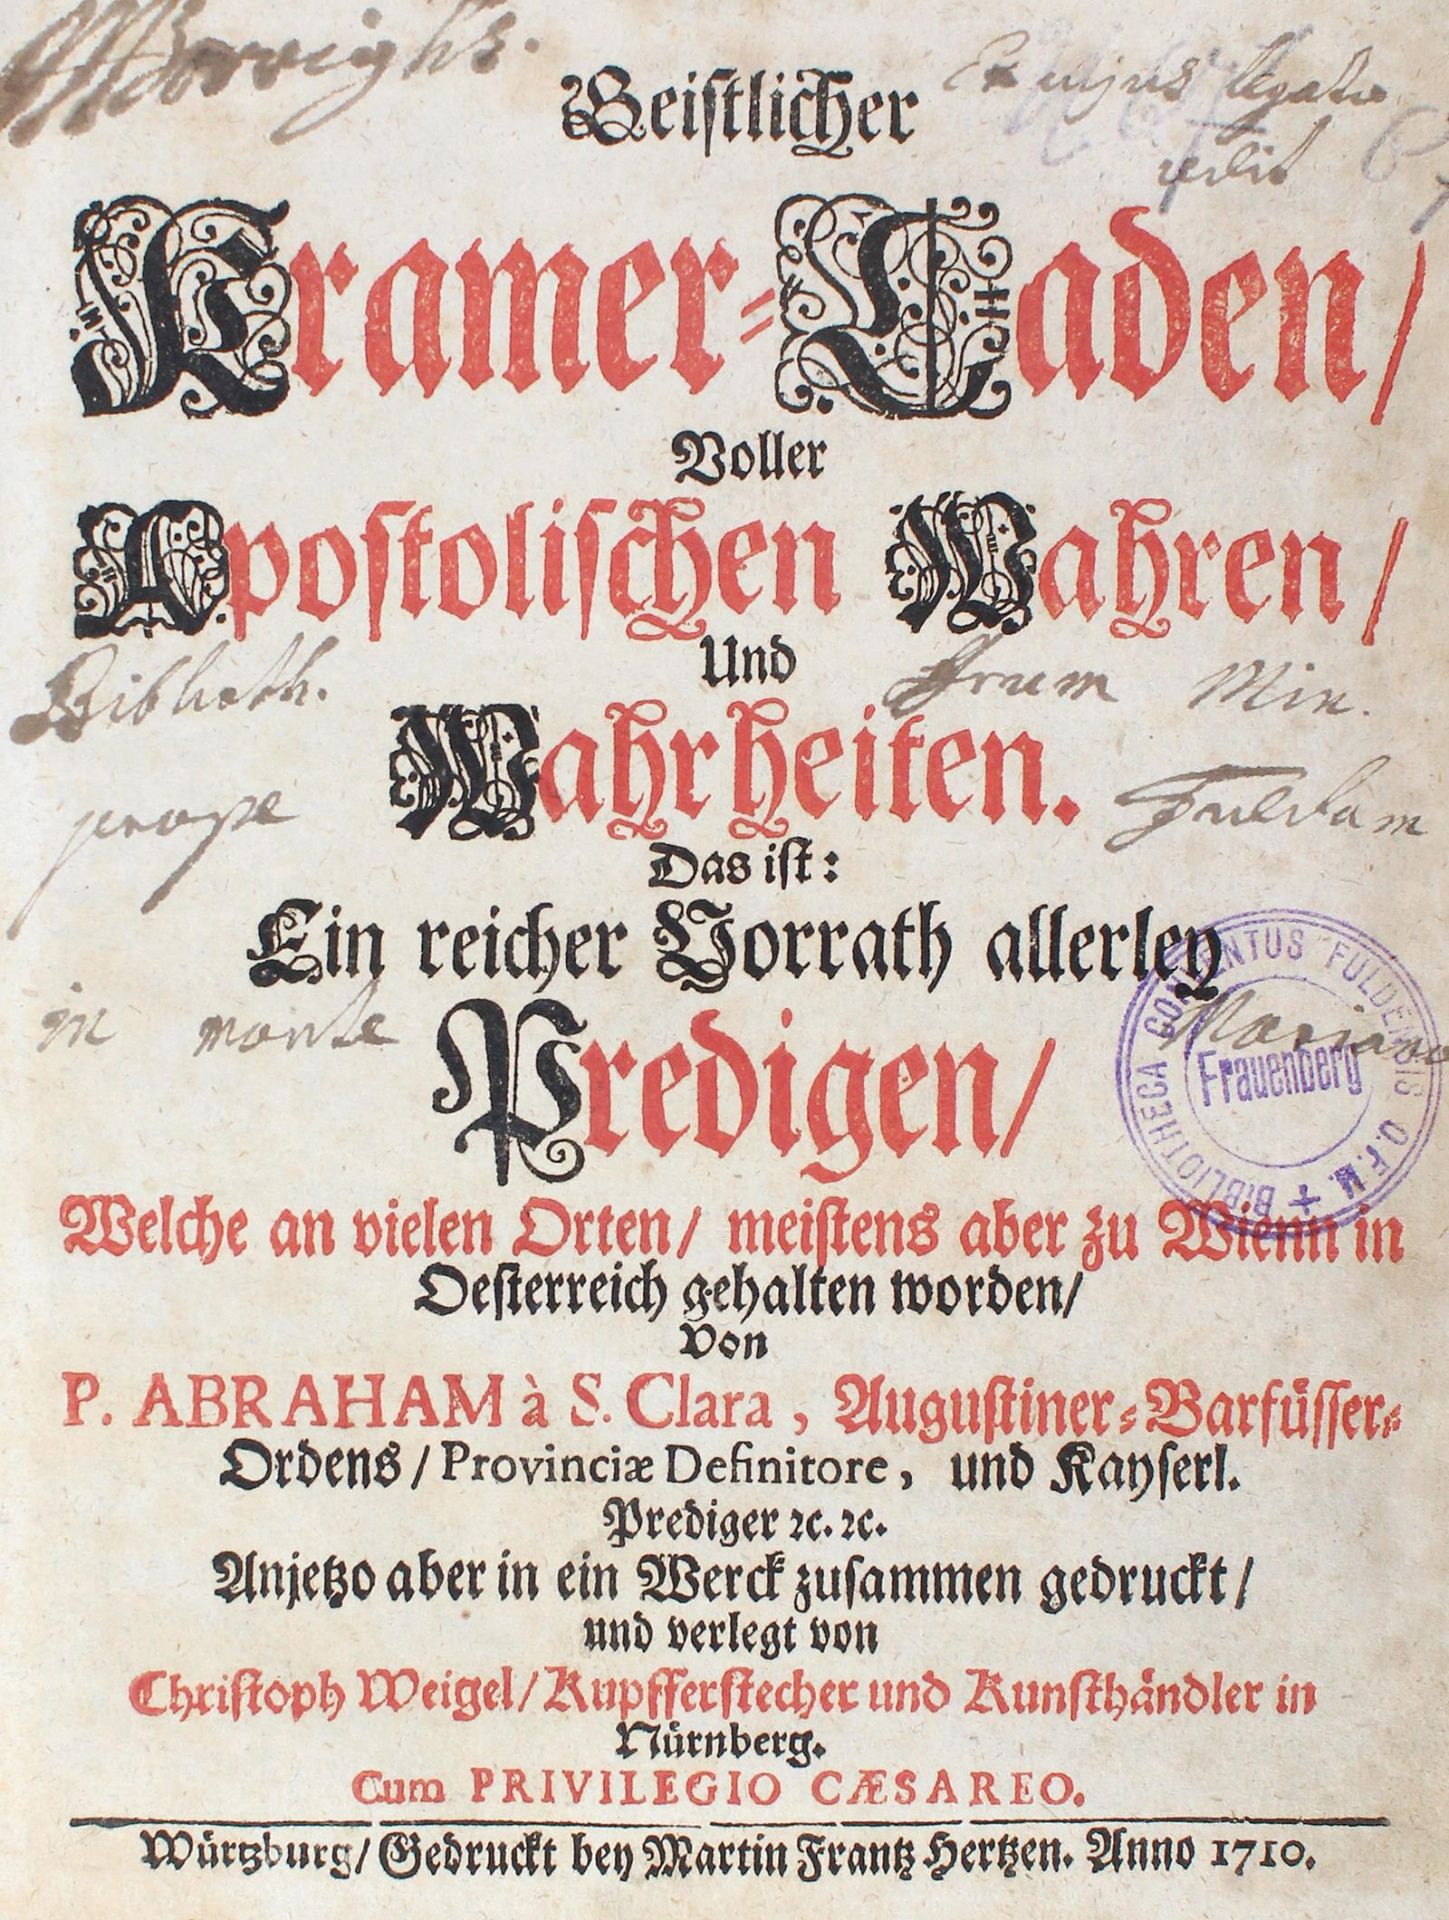 Geistlicher
Ex legato
Kramer-Laden/
Voller
Apostolischen Wahren/
Und
Biblioth. Frum Min.
Wahrheiten.
prope Fuldam
Das ist:
Ein reicher Vorrath allerley
in monte Mariano
Predigen/
BIBLIOTHECA CONVENTUS FULDENSIS O.F.M. +
Frauenberg
Welche an vielen Orten/ meistens aber zu Wienn in
Oesterreich gehalten worden/
Von
P. ABRAHAM à S. Clara, Augustiner-Barfüsser-
Ordens/ Provinciæ Definitore, und Kayserl.
Prediger ꝛc. ꝛc.
Anjetzo aber in ein Werck zusammen gedruckt/
und verlegt von
Christoph Weigel/ Kupfferstecher und Kunsthändler in
Nürnberg.
Cum PRIVILEGIO CÆSAREO.
Würtzburg/ Gedruckt bey Martin Frantz Hertzen. Anno 1710.